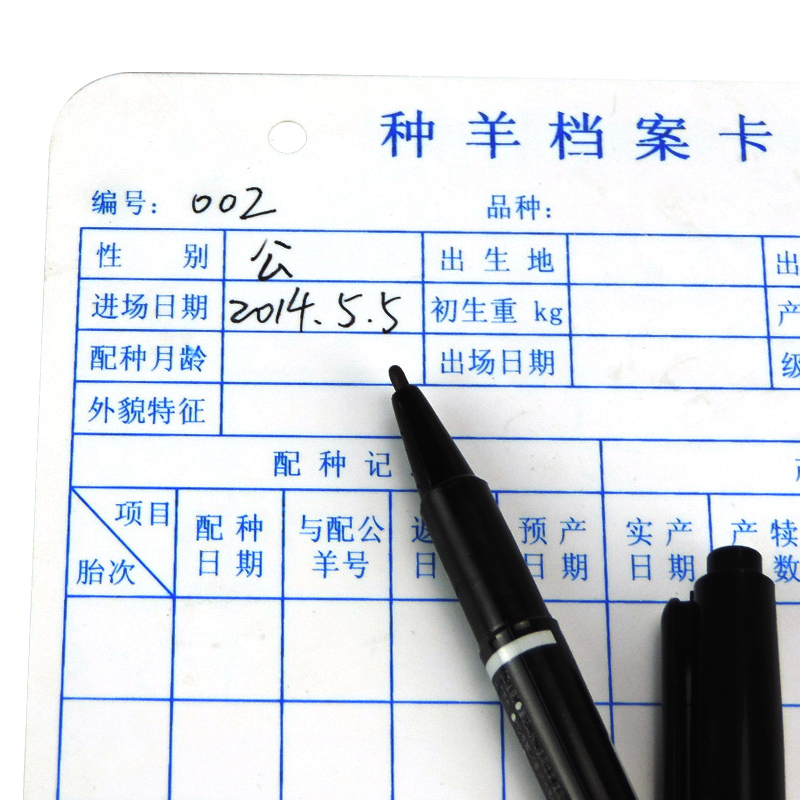 种羊档案卡
编号： 002 品种：
性 别 公 出 生 地 出
进场日期 2014.5.5 初生重 kg 产
配种月龄 出场日期 级
外貌特征
配 种 记
项目 配 种 与配公 预 产 实 产 产 犊
胎次 日 期 羊号 日 日 期 日 期 数